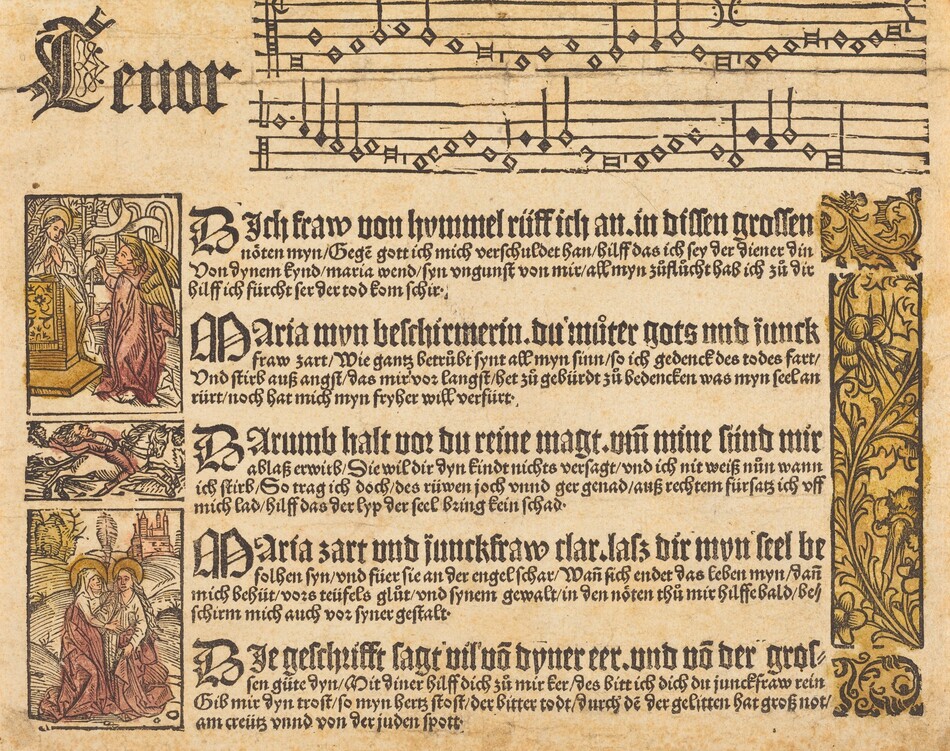 Tenor
DIch fraw von hymmel rüff ich an.in dissen grossen
nöten myn/Gegē gott ich mich verschuldet han/hilff das ich sey der diener din
Von dynem kynd/maria wend/syn vngunst von mir/all myn zůflůcht hab ich zů dir
hilff ich fürcht ser der tod kom schir.
MAria myn beschirmerin.du můter gots vnd junck
fraw zart/Wie gantz betrůbt synt all myn sinn/so ich gedenck des todes fart/
Vnd stirb auß angst/das mir vor langst/het zů gebürdt zů bedencken was myn seel an
rürt/noch hat mich myn fryher will verfürt.
DArumb halt vor du reine magt.vm̄ mine sünd mir
ablaß erwirb/Die wil dir dyn kindt nichts versagt/vnd ich nit weiß nün wann
ich stirb/So trag ich doch/des rüwen joch vnnd ger genad/auß rechtem fürsatz ich vff
mich lad/hilff das der lyp der seel bring kein schad.
MAria zart vnd junckfraw clar.lasz dir myn seel be
folhen syn/vnd füer sie an der engel schar/Wan̄ sich endet das leben myn/dan̄
mich behüt/vors teüfels glůt/vnd synem gewalt/in den nöten thů mir hilffe bald/be/
schirm mich auch vor syner gestalt.
DIe geschrifft sagt vil vō dyner eer.vnd vō der gros-
sen gůte dyn/Mit diner hilff dich zů mir ker/des bitt ich dich du junckfraw rein
Gib mir dyn trost/so myn hertz stost/der bitter todt/durch dē der gelitten hat groß not/
am creütz vnnd von der juden spott.